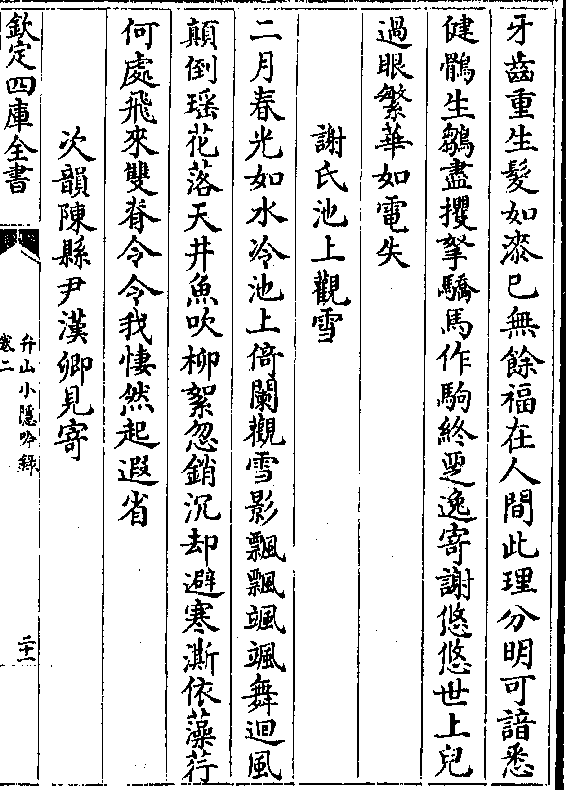 牙齒重生髮如漆已無餘福在人間此理分明可諳悉
健鶻生鶵盡攫拏驕馬作駒終覂逸寄謝悠悠世上兒
過眼繁華如電失
謝氏池上觀雪
二月春光如水冷池上倚闌觀雪影飄飄颯颯舞迴風
顛倒瑶花落天井魚吹柳絮忽銷沉却避寒澌依藻荇
何處飛來雙脊令令我悽然起遐省
次韻陳縣尹漢卿見寄
欽定四庫全書
弁山小隱吟録
卷二
二十一